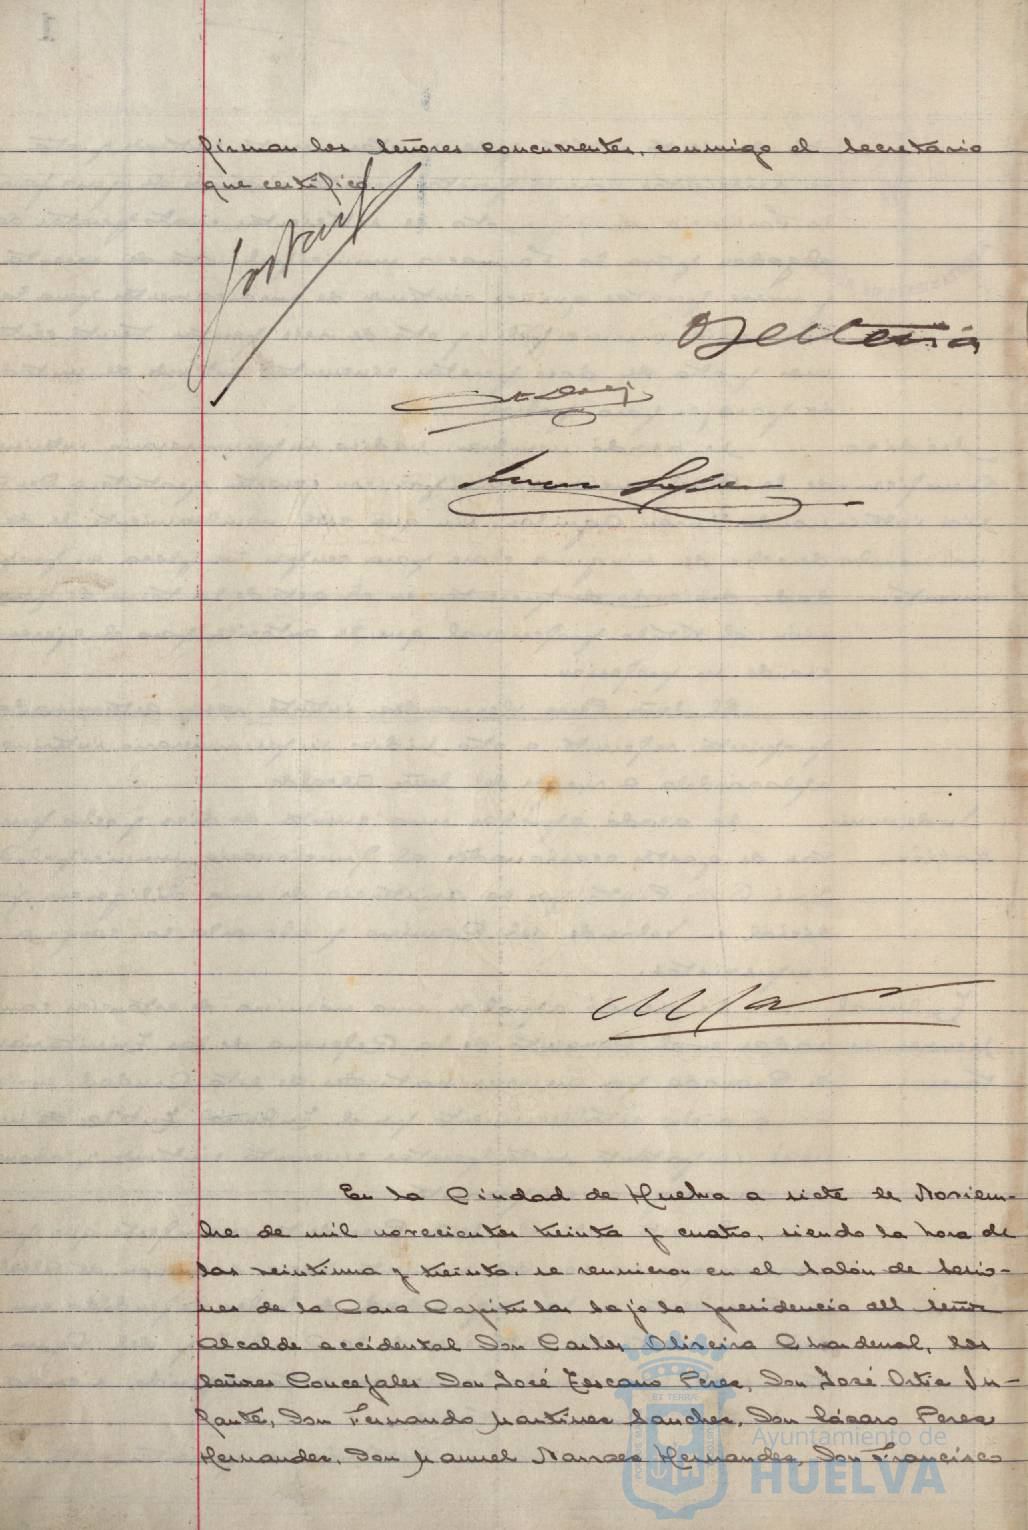 firman los señores concurrentes, conmigo el secretario
que certifico.
En la Ciudad de Huelva a siete de Noviem-
bre de mil novecientos treinta y cuatro, siendo la hora de
las veintiuna y treinta, se reunieron en el Salón de Sesio-
nes de la Casa Capitular bajo la presidencia del señor
Alcalde accidental Don Carlos Oliveira Chardenal, los
señores Concejales Don José Lescano Perez, Don José Ortiz In-
fante, Don Fernando Martinez Sanchez, Don Cásaro Perez
Hernandez, Don Manuel Narraez Hernandez, Don Francisco
Ayuntamiento de
HUELVA